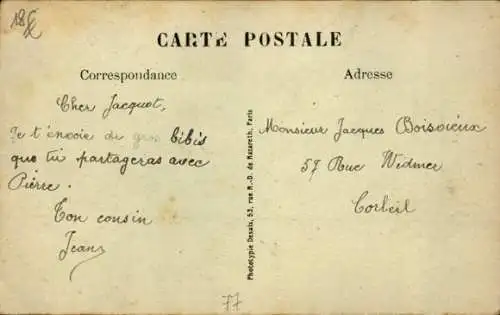 18€
CARTE POSTALE
Correspondance
Cher Jacquot,
Je t'envoie de gros bibis
que tu partageras avec
Pierre.
Ton cousin
Jean
Photolypie Desaix, 53, rue N.-D. de Nazareth, Paris
Adresse
Monsieur Jacques Boisvieux
57 Rue Widmer
Corbeil
77